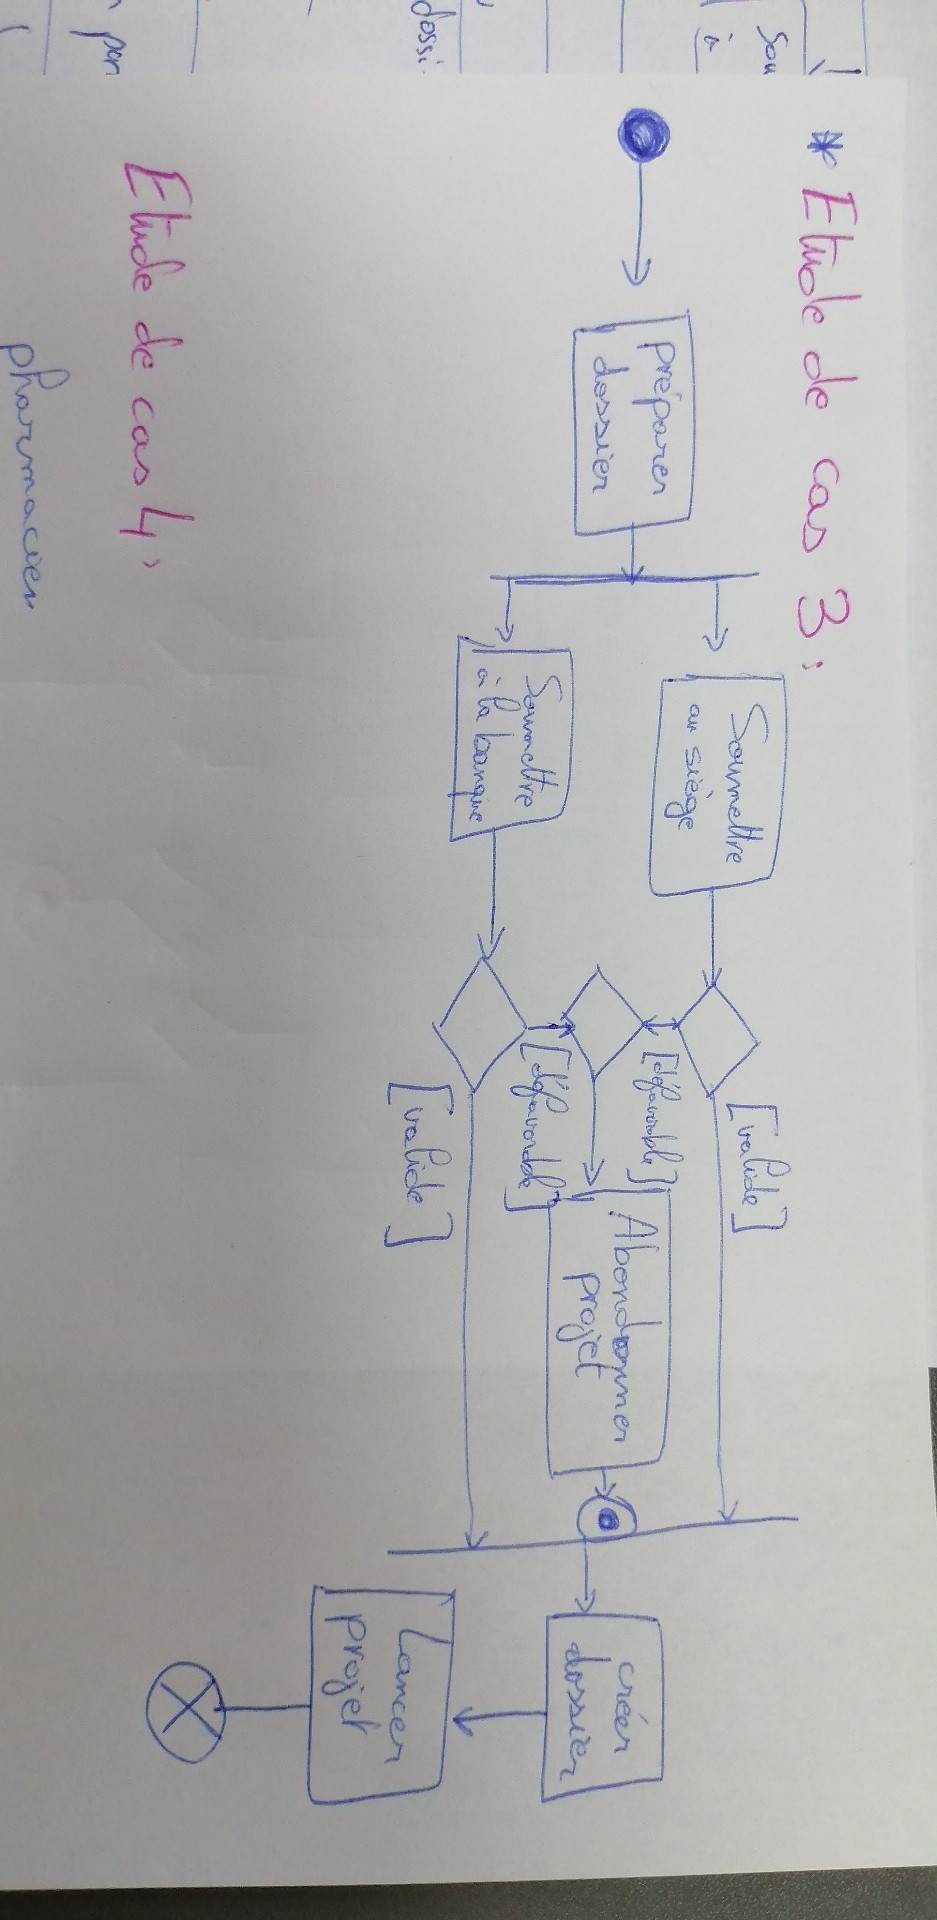 * Etude de cas 3:
préparer
dossier
Soumettre
au siège
Soumettre
à la banque
[valide]
[défavorable]
[défavorable]
[valide]
Abondonner
projet
créer
dossier
Lancer
projet
Etude de cas 4:
pharmacien
Sou
à
dossi
par